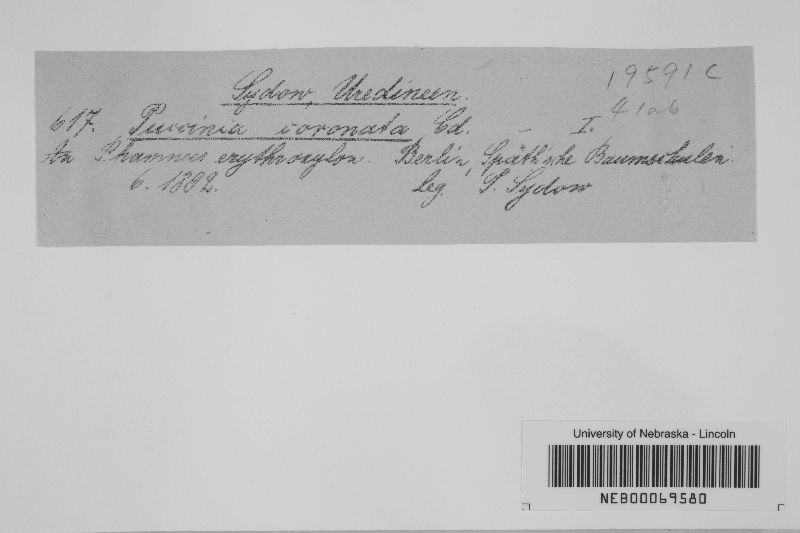 Sydow, Uredineen.
19591 C
41ab
617. Puccinia coronata Cd. - I.
An Rhamnus erythroxylon. Berlin, Späth'sche Baumschulen.
6. 1892. leg. P. Sydow
University of Nebraska - Lincoln
NEB00069580